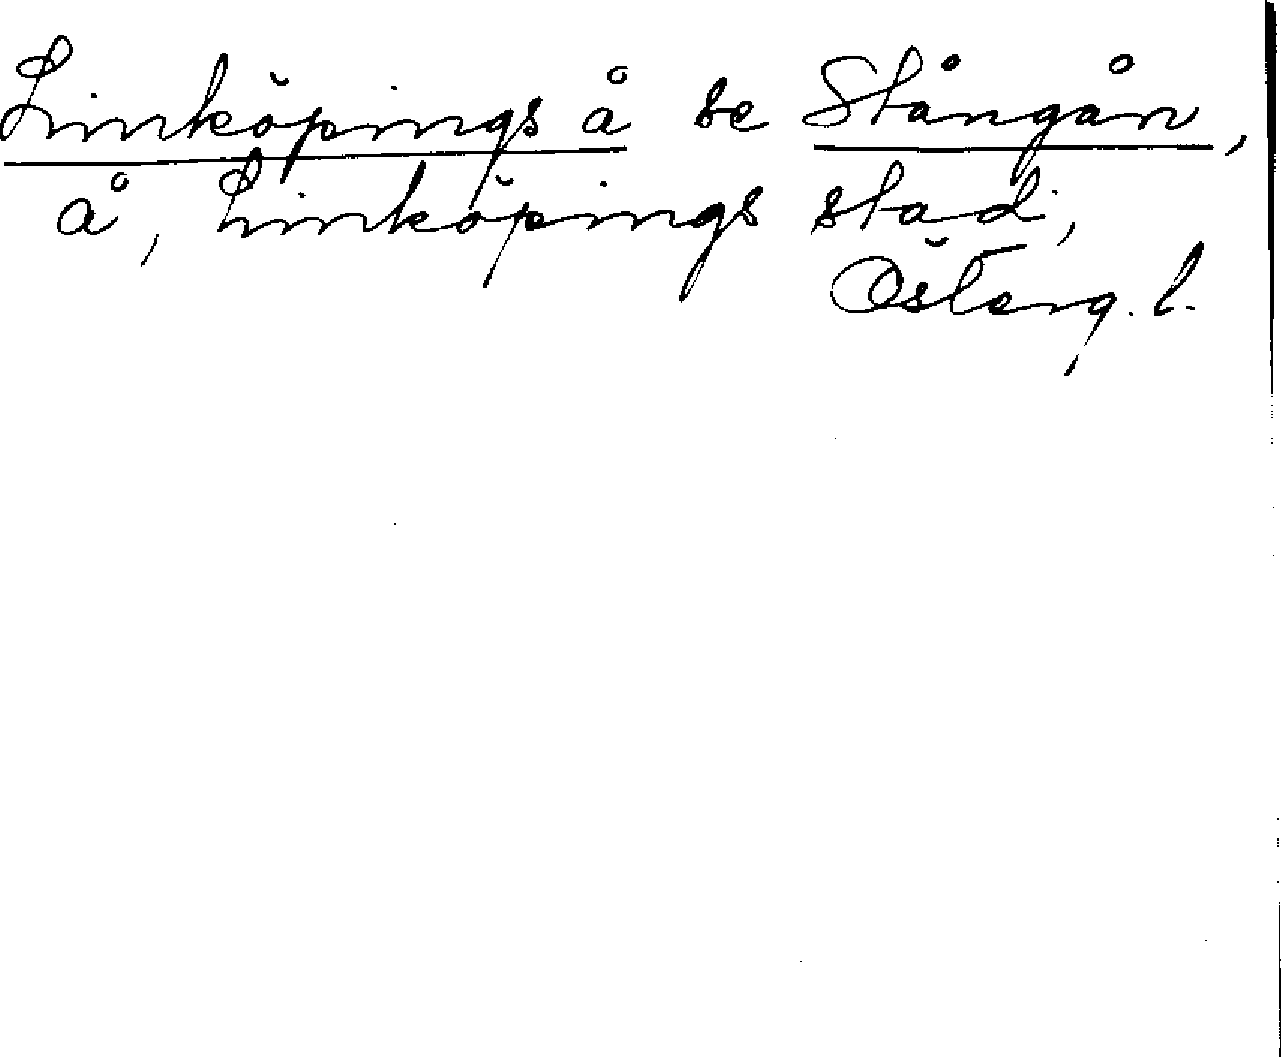 Linköpings å se Stångån,
å, Linköpings stad,
Österg. l.